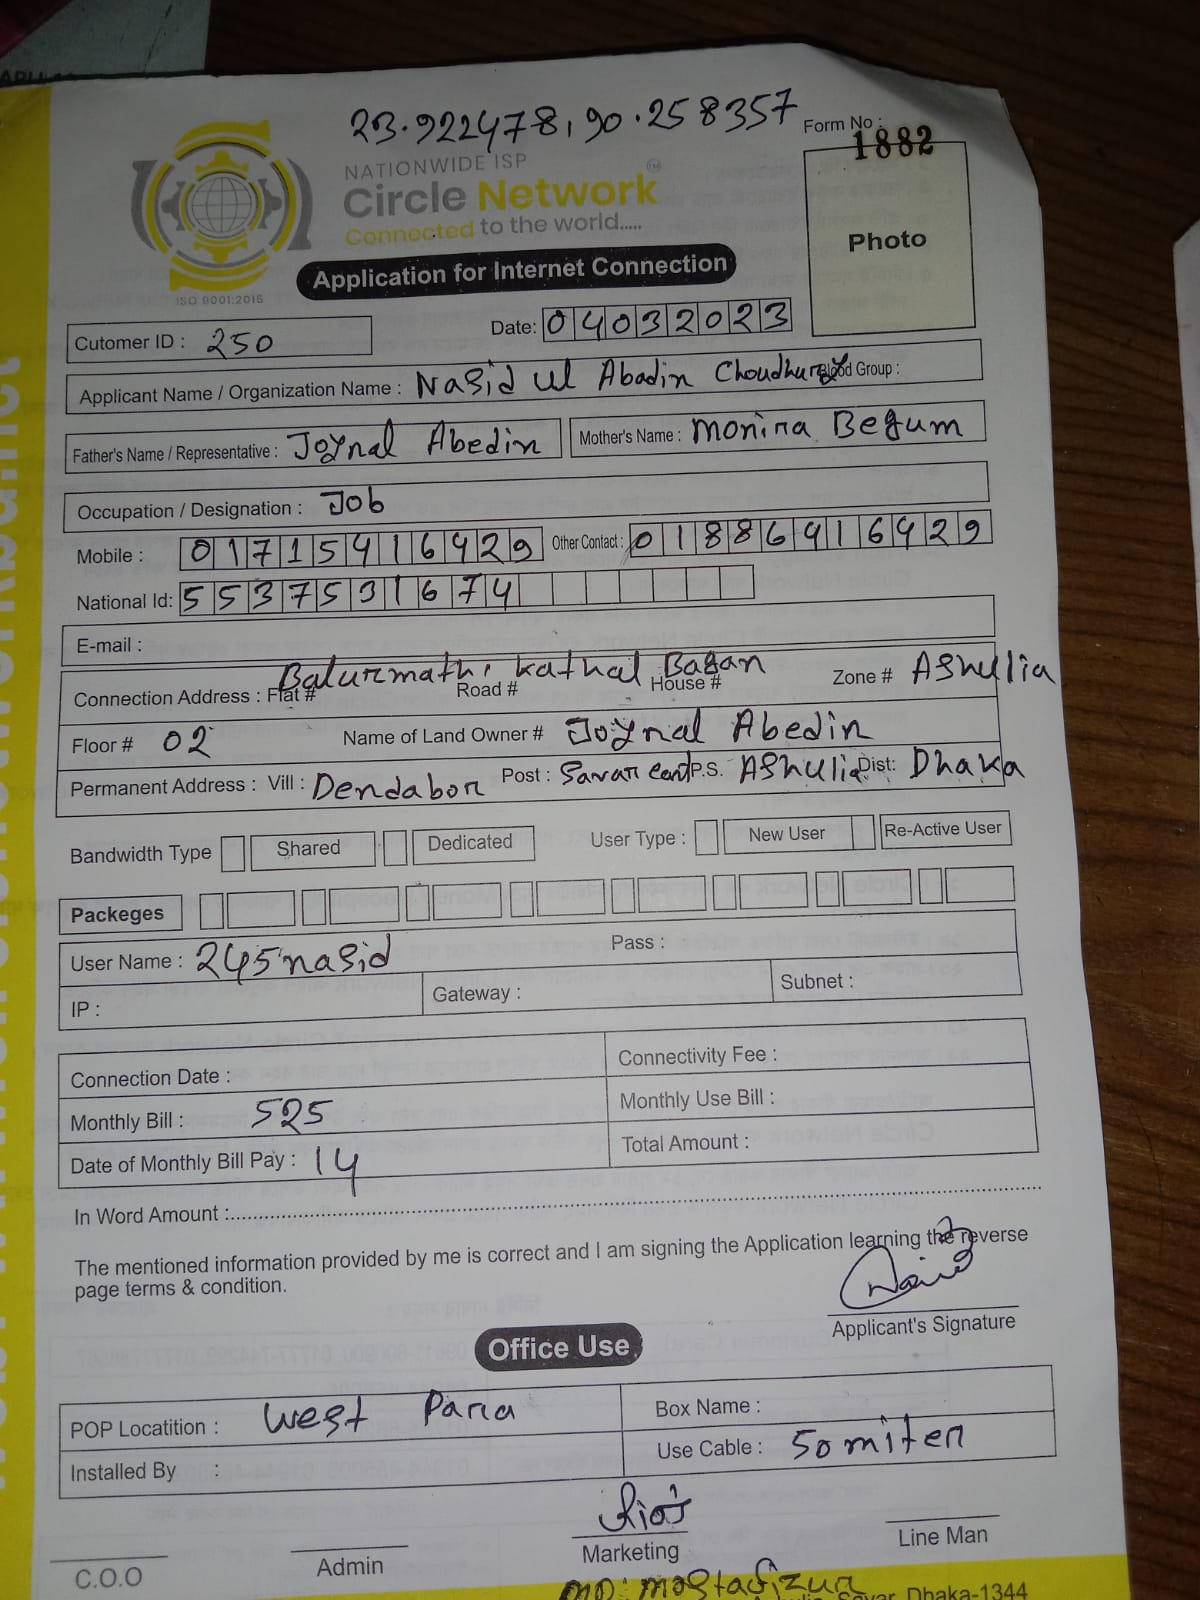 23.922478, 90.258357
Form No :
1882
NATIONWIDE ISP
Circle Network
Connected to the world.....
ISO 9001:2015
Photo
Application for Internet Connection
Cutomer ID : 250
Date: 04032023
Applicant Name / Organization Name : Nasid ul Abadin Choudhury Blood Group :
Father's Name / Representative : Joynal Abedin
Mother's Name : Monira Begum
Occupation / Designation : Job
Mobile : 01715416429 Other Contact : 01886916929
National Id: 5537531674
E-mail :
Connection Address : Flat # Balurmath, Kathal Bagan Road # House # Zone # Ashulia
Floor # 02 Name of Land Owner # Joynal Abedin
Permanent Address : Vill : Dendabor Post : Savar Cant P.S. Ashulia Dist: Dhaka
Bandwidth Type Shared Dedicated User Type : New User Re-Active User
Packeges
User Name : 245nasid Pass :
IP : Gateway : Subnet :
Connection Date : Connectivity Fee :
Monthly Bill : 525 Monthly Use Bill :
Date of Monthly Bill Pay : 14 Total Amount :
In Word Amount :
The mentioned information provided by me is correct and I am signing the Application learning the reverse
page terms & condition.
Applicant's Signature
Office Use
POP Locatition : West Para Box Name :
Installed By : Use Cable : 50 miter
C.O.O Admin Marketing Line Man
MD: Mostafizur
Savar, Dhaka-1344